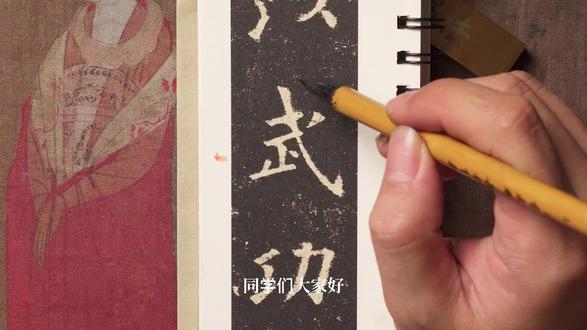 武
功
同学们大家好